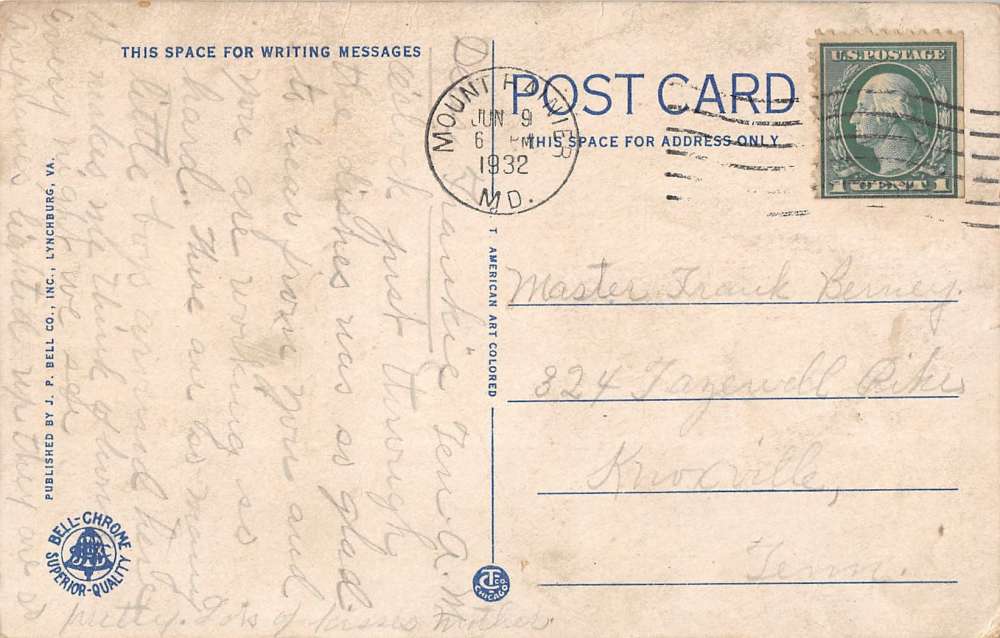 THIS SPACE FOR WRITING MESSAGES
POST CARD
THIS SPACE FOR ADDRESS ONLY
MOUNT RAINIER
JUN 9
6 PM
1932
MD.
U.S. POSTAGE
1 CENT 1
Master Frank Berney.
324 Tazewell Pike
Knoxville,
Tenn.
Frankie Ten A. M.
and just through
the dishes was so glad
to hear from you and
you are so
hard. There are so many
little boys around here
it does not think
every night we see
ships lighted up they are so
pretty. Lots of kisses Mother.
PUBLISHED BY J. P. BELL CO., INC., LYNCHBURG, VA.
BELL-CHROME
SUPERIOR-QUALITY
T AMERICAN ART COLORED
CT CO.
CHICAGO